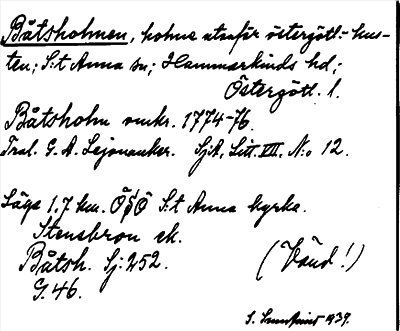 Båtsholmen, holme utanför östergötl.-kus-
ten; S:t Anna sn; Hammarkinds hd;
Östergötl. l.
Båtsholm omkr. 1774-76.
Tral. G. A. Lejonanker. SjA, Litt. VII. N:o 12.
Läge 1.7 km. ÖSÖ S:t Anna kyrka.
Stensbron ek.
Båtsh. Sj: 252.
G. 46.
(Vänd!)
S. 1937.